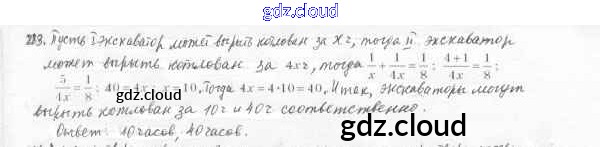 gdz.cloud
213. Пусть I экскаватор может вырыть котлован за x ч, тогда II экскаватор
может вырыть котлован за 4x ч, тогда 1/x + 1/4x = 1/8; 4+1/4x = 1/8;
5/4x = 1/8; 40 = 4x; =10. Тогда 4x = 4·10 = 40. Итак, экскаваторы могут
gdz.cloud
вырыть котлован за 10 ч и 40 ч соответственно.
gdz.cloud
Ответ: 10 часов, 40 часов.
gdz.cloud